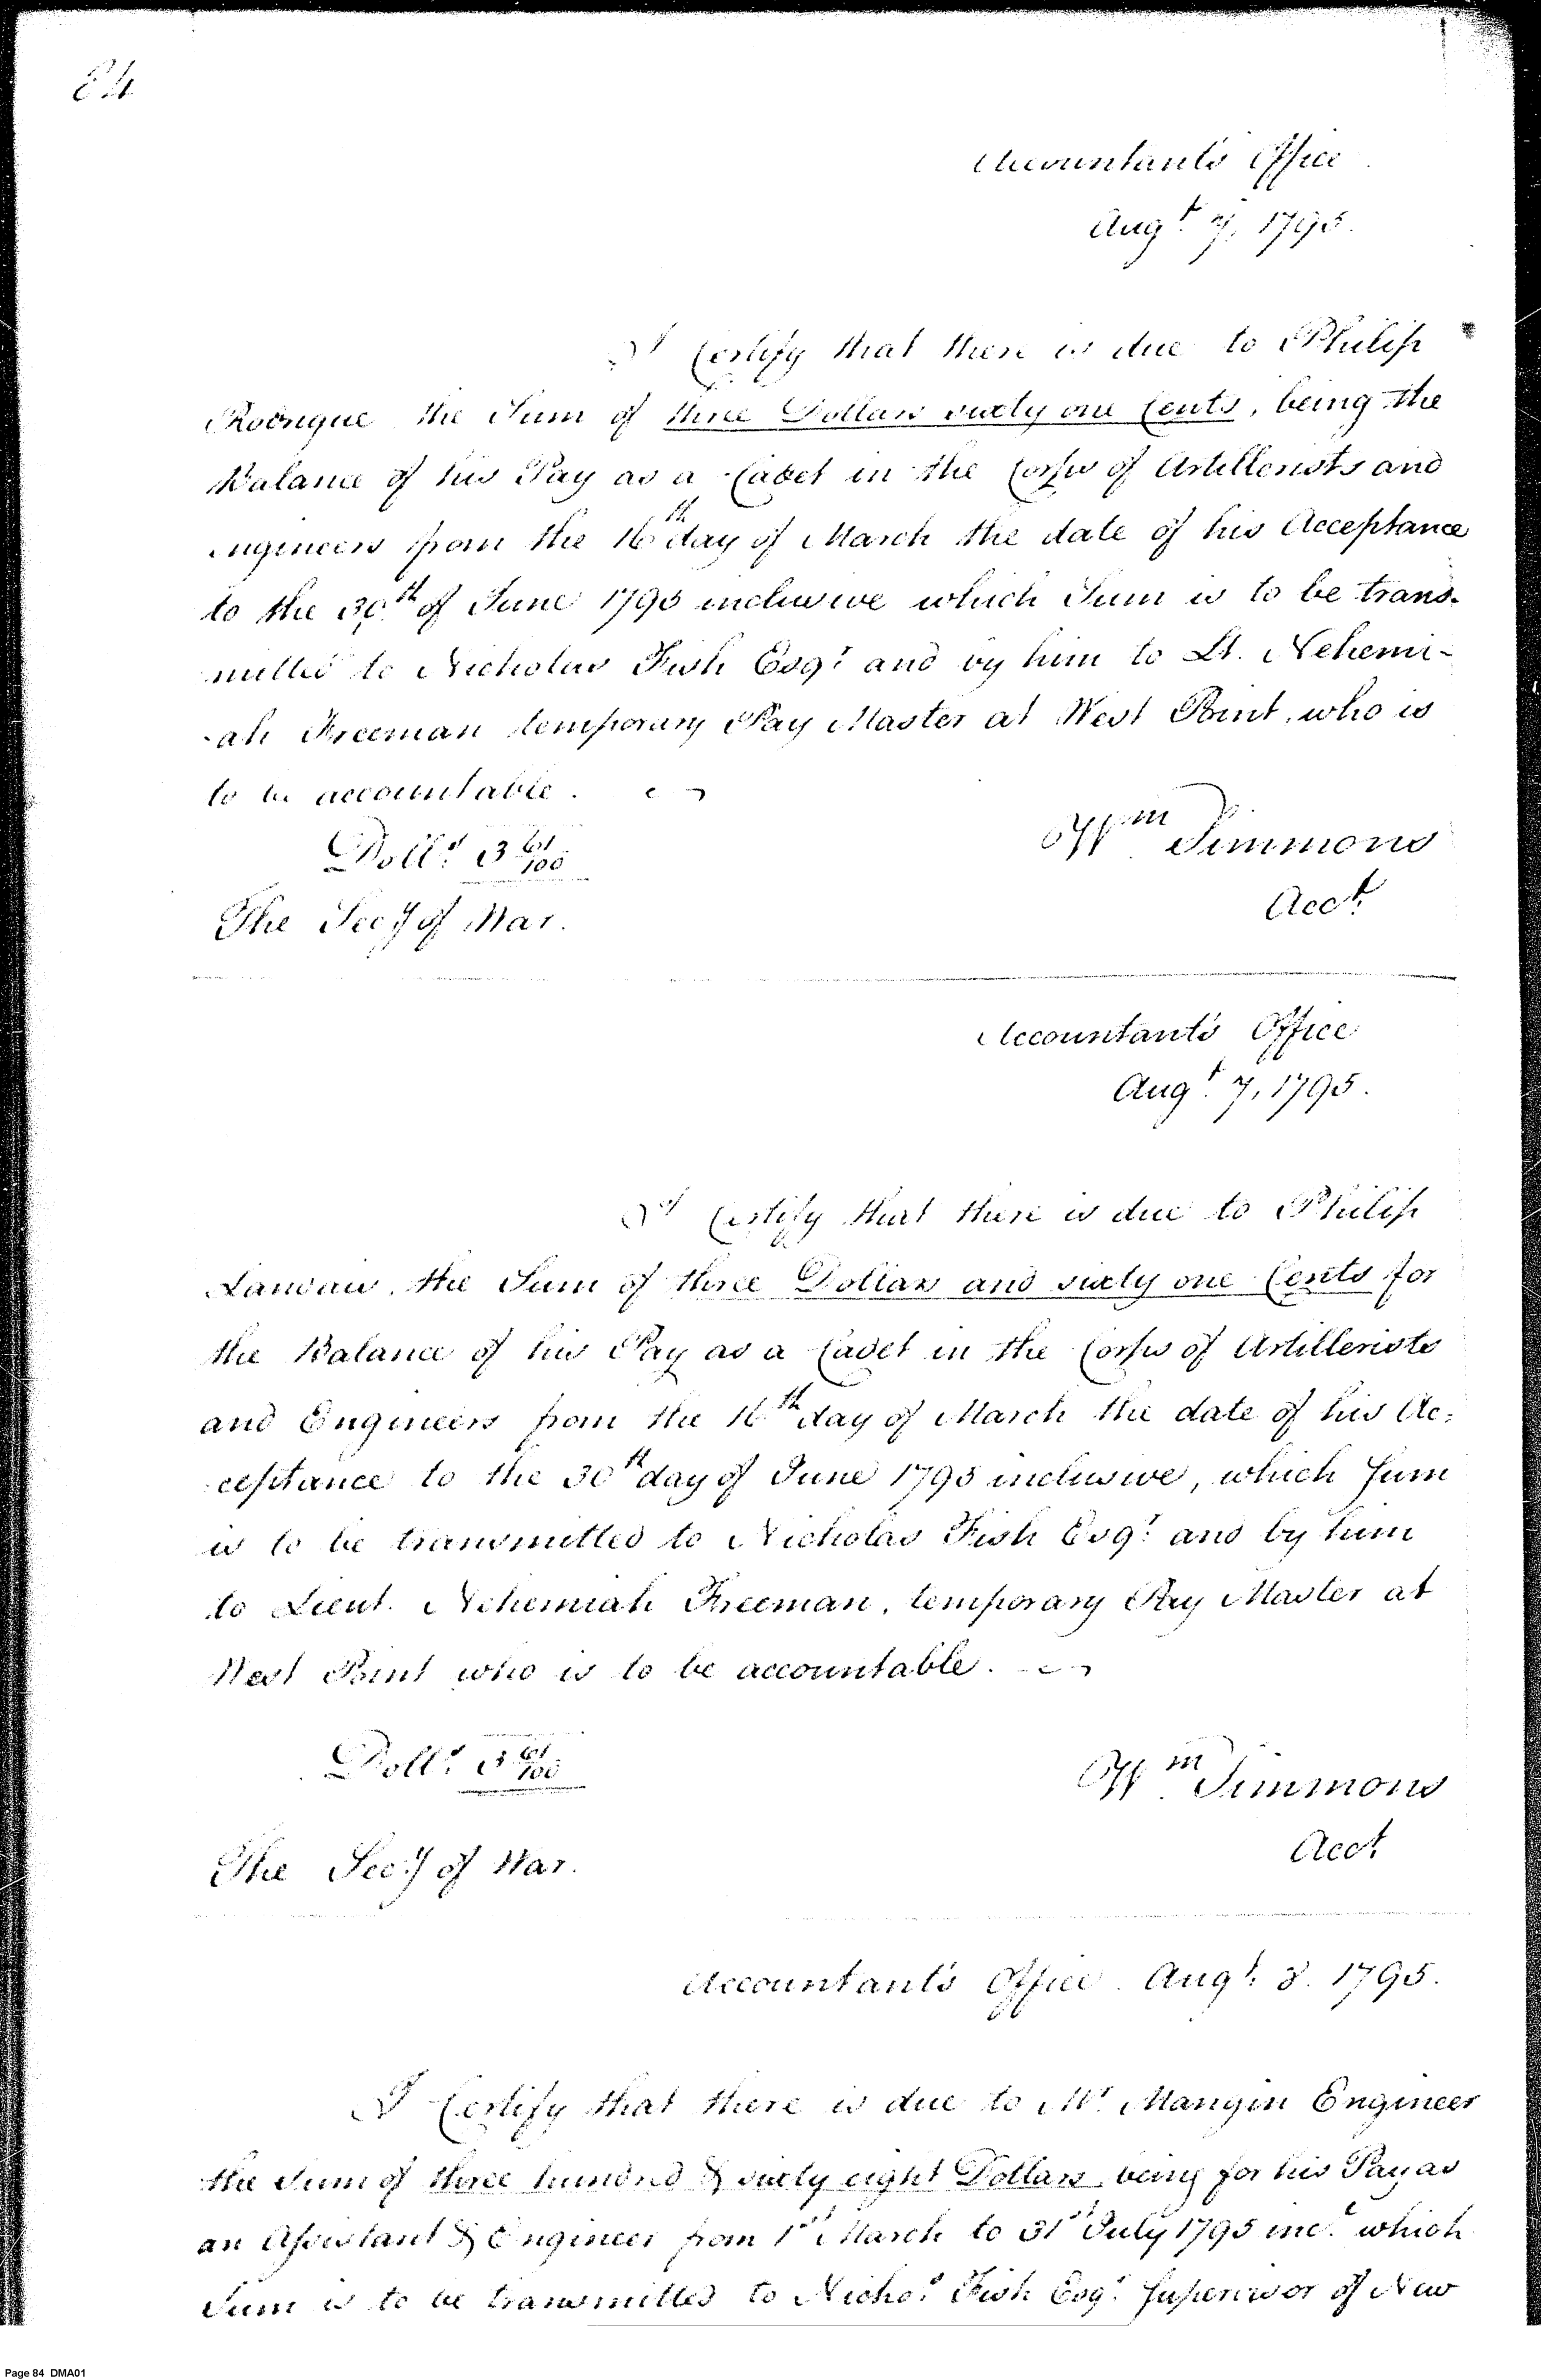 84
Accountant's Office
Augt. 7, 1795.
I Certify that there is due to Philip
Rodrigue the Sum of three Dollars sixty one Cents, being the
Balance of his Pay as a Cadet in the Corps of Artillerists and
Engineers from the 16th day of March the date of his Acceptance
to the 30th of June 1795 inclusive which Sum is to be trans-
mitted to Nicholas Fish Esqr. and by him to Lt. Nehemi-
-ah Freeman temporary Pay Master at West Point, who is
to be accountable.
Dolls. 3 61/100
Wm Simmons
Acct.
The Secy of War.
Accountant's Office
Augt. 7, 1795.
I Certify that there is due to Philip
Landais, the Sum of three Dollars and sixty one Cents for
the Balance of his Pay as a Cadet in the Corps of Artillerists
and Engineers from the 16th day of March the date of his Ac-
ceptance to the 30th day of June 1795 inclusive, which Sum
is to be transmitted to Nicholas Fish Esqr. and by him
to Lieut. Nehemiah Freeman, temporary Pay Master at
West Point who is to be accountable.
Dolls. 3 61/100
Wm. Simmons
Acct.
The Secy of War.
Accountant's Office. Augt. 8. 1795.
I Certify that there is due to Mr. Mangin Engineer
the Sum of three hundred & sixty eight Dollars, being for his Pay as
an Assistant & Engineer from 1st March to 31st July 1795 inc. which
Sum is to be transmitted to Nichos. Fish Esqr. Supervisor of New
Page 84 DMA01